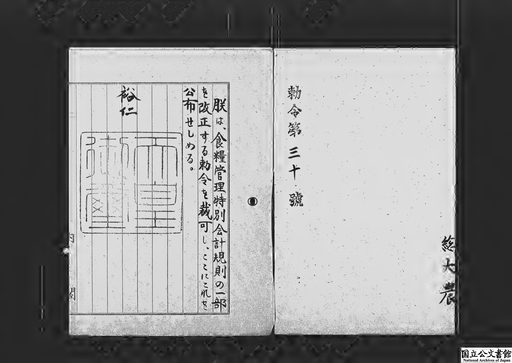 勅令第三十號
総大農
朕は、食糧管理特別会計規則の一部
を改正する勅令を裁可し、ここにこれを
公布せしめる。
裕仁
天皇御璽
内閣
国立公文書館
National Archives of Japan